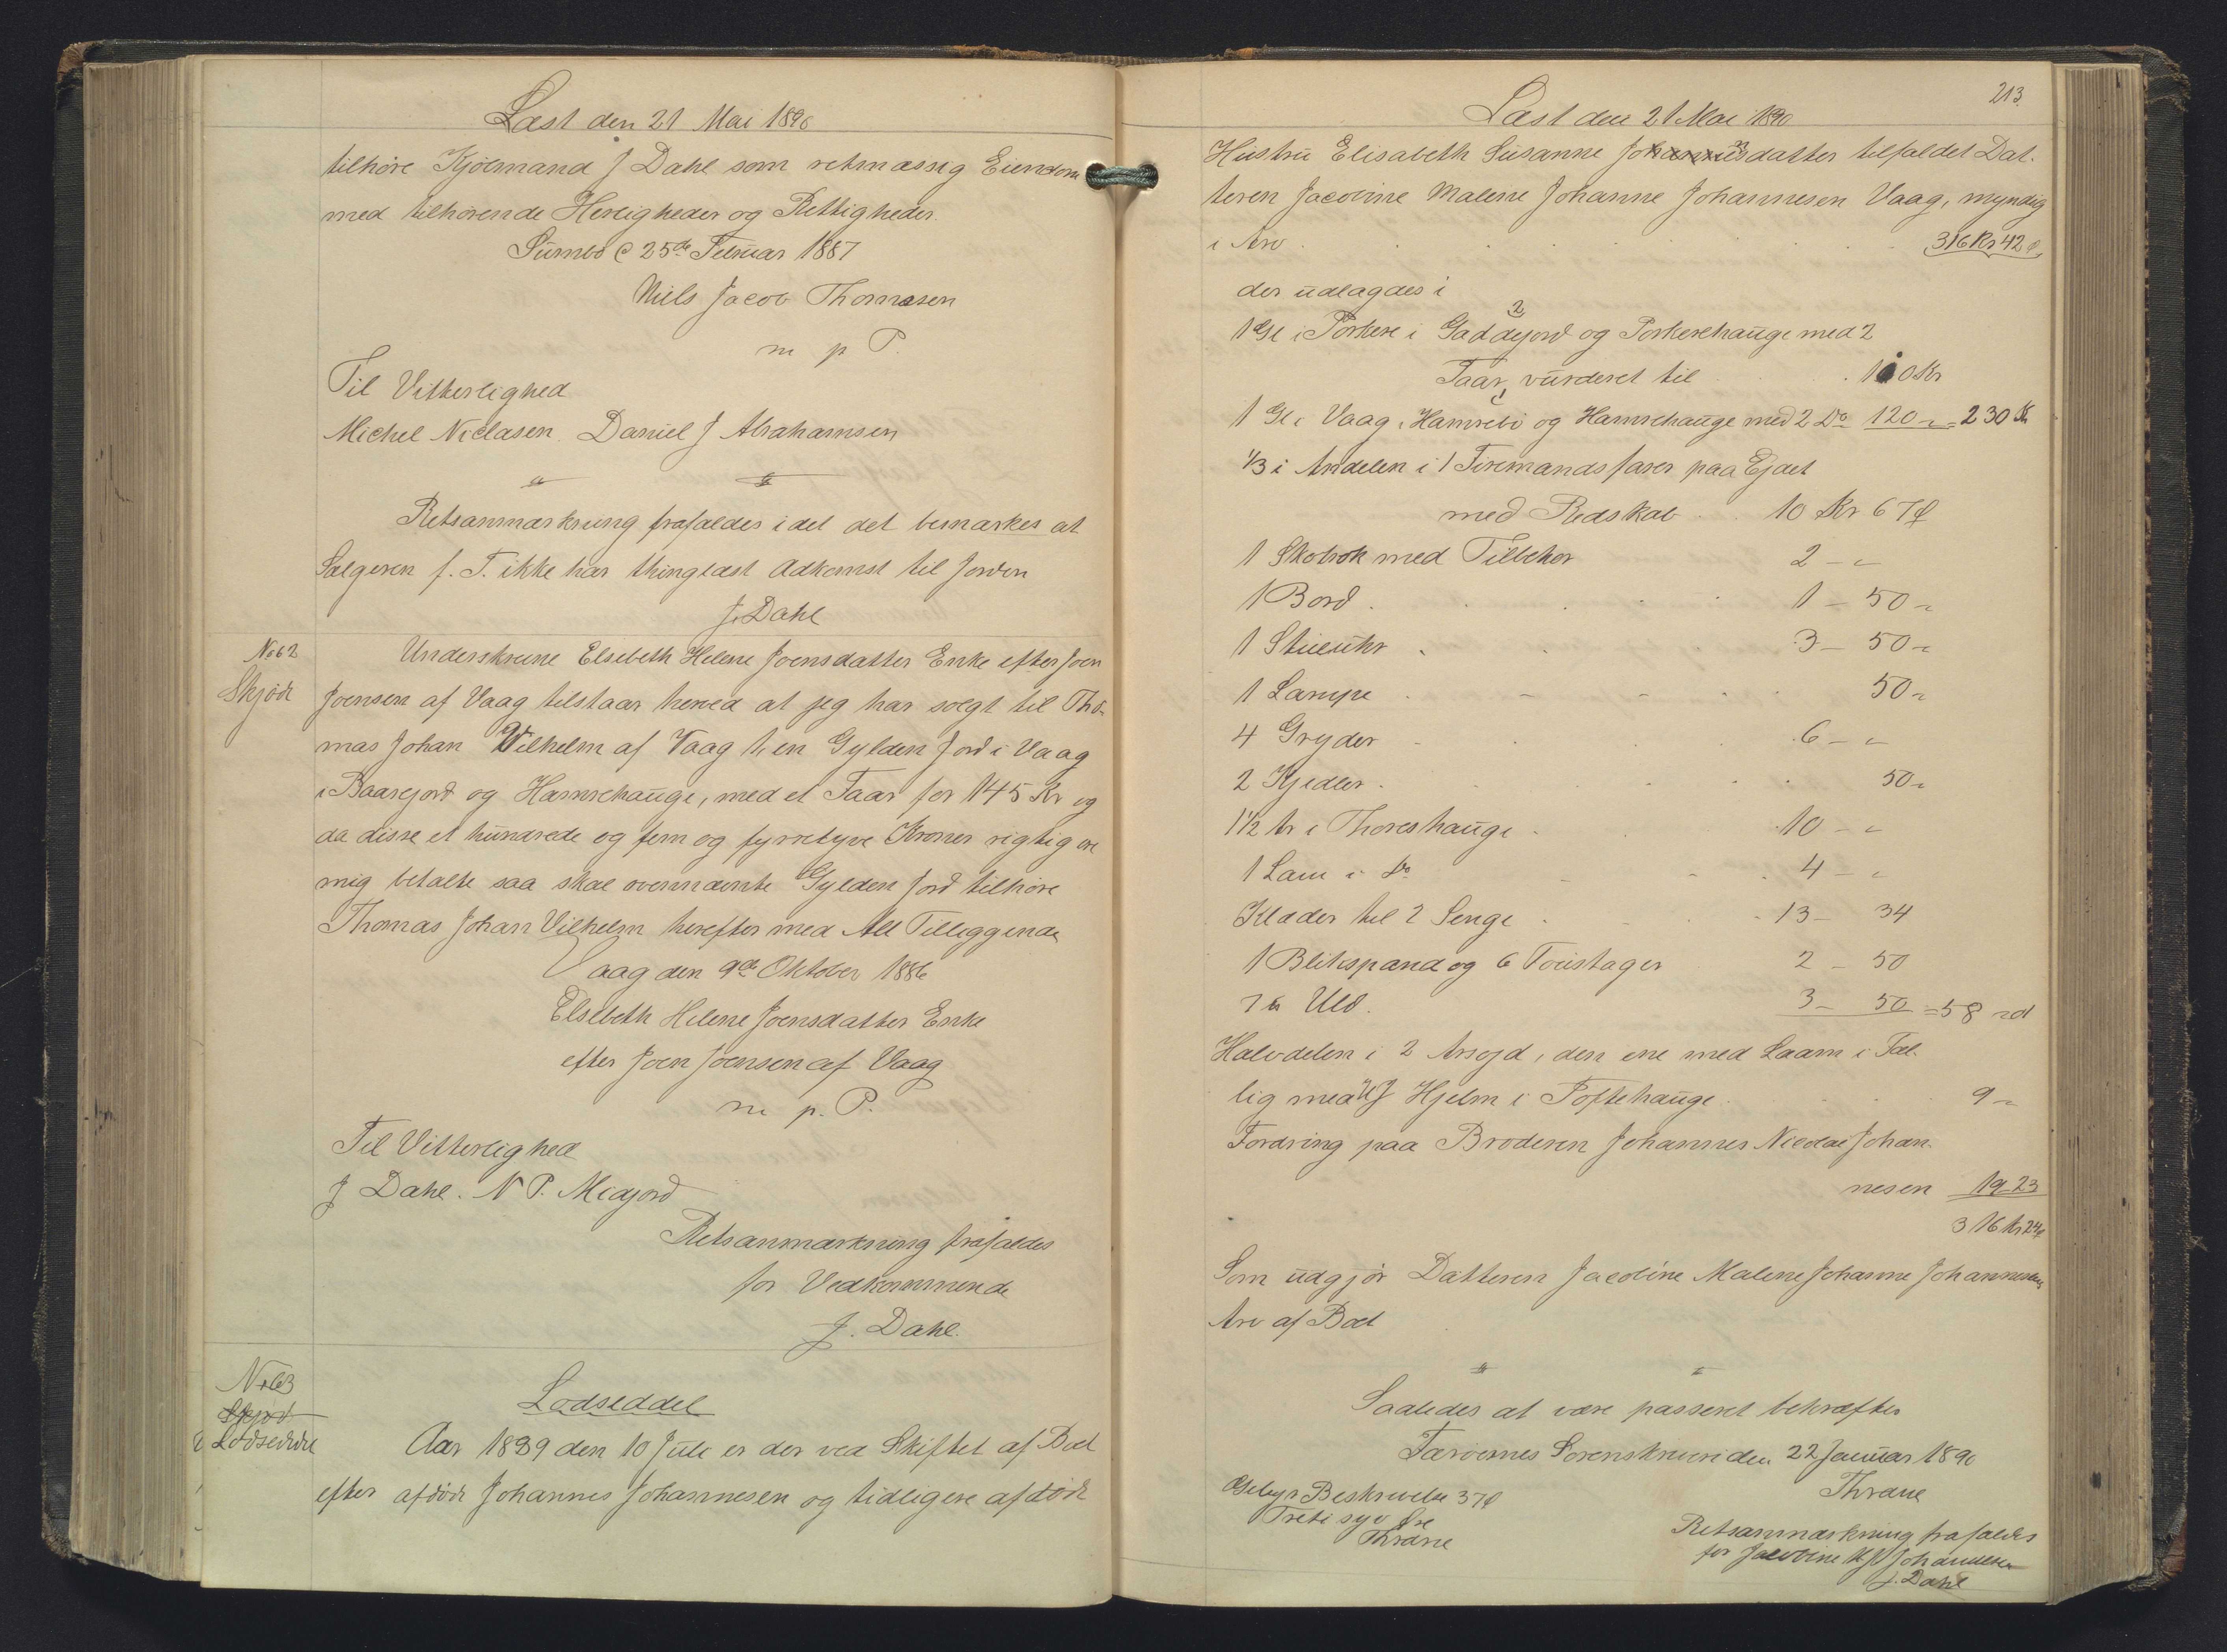 Læst den 21 Mai 1890
tilhøre Kjøbmand J Dahl som retmæssig Eiendom
med tilhørende Herligheder og Rettigheder.
Sumbø d 25de Februar 1887
Niels Jacob Thomasen
m p P.
Til Vitterlighed
Michel Niclasen Daniel J Abrahamsen
Retsanmærkning frafaldes idet det bemærkes at
Sælgeren p. T. ikke har thinglæst Adkomst til Jorden
J. Dahl
No 62
Skjøde
Underskrevne Elsebeth Helene Joensdatter Enke efter Joen
Joensen af Vaag tilstaar herved at jeg har solgt til Tho-
mas Johan Vilhelm af Vaag 1, en Gylden Jord i Vaag
i Baarejord og Hamrehauge, med et Faar for 145 Kr og
da disse et hundrede og fem og fyrretyve Kroner rigtig ere
mig betalte saa skal ovennævnte Gylden Jord tilhøre
Thomas Johan Vilhelm herefter med Alt Tilliggende
Vaag den 9de Oktober 1886
Elsebeth Helene Joensdatter Enke
efter Joen Joensen af Vaag
m p. P.
Til Vitterlighed
J Dahl. N P. Midjord
Retsanmærkning frafaldes
for Vedkommende
J. Dahl.
No 63
Skjød
Lodseddel
Lodseddel
Aar 1889 den 10 Juli er der ved Skiftet af Boet
efter afdøde Johannes Johannesen og tidligere afdøde
213.
Læst den 21 Mai 1890
Hustru Elisabeth Susanne Johannesdatter tilfaldet Dat-
teren Jacobine Malene Johanne Johannesen Vaag, myndig
i Arv 316 Kr 42 Ø
der udlagdes i
1 Gl i Porkere i Gaddejord og Porkerehauge med 2
Faar, vurderet til 110 Kr
1 Gl i Vaag i Hamrebø og Hamrehauge med 2 Do 120 - = 230 Kr
1/3 i Andelen i 1 Firemandsfarer paa Ejdet
med Redskab 10 Kr 67 Ø
1 Skobrok med Tilbehør 2 - "
1 Bord 1 - 50 -
1 Stueuhr 3 - 50 -
1 Lampe 50 -
4 Gryder 6 - "
2 Kjedler 50 -
1 1/2 Ar i Thoreshauge 10 - "
1 Lam i Do 4 - "
Klæder til 2 Senge 13 - 34
1 Blikspand og 6 Toustager 2 - 50
7 ℔ Uld 3 - 50 = 58 - 01
Halvdelen i 2 Aregd, den ene med Laam i Fæl-
lig med H J Hjelm i Toftehauge 9 -
Fordring paa Broderen Johannes Nicolai Johan-
nesen 19 23
316 Kr 24 Ø
Som udgjør Datteren Jacobine Malene Johanne Johannesens
Arv af Boet
Saaledes at være passeret bekræfter
Færøernes Sorenskriveri den 22 Januar 1890
Thrane
Gebyr Beskrivelse 37 Ø
Treti syv Øre
Thrane
Retsanmærkning frafaldes
for Jacobine M J Johannesen
J. Dahl